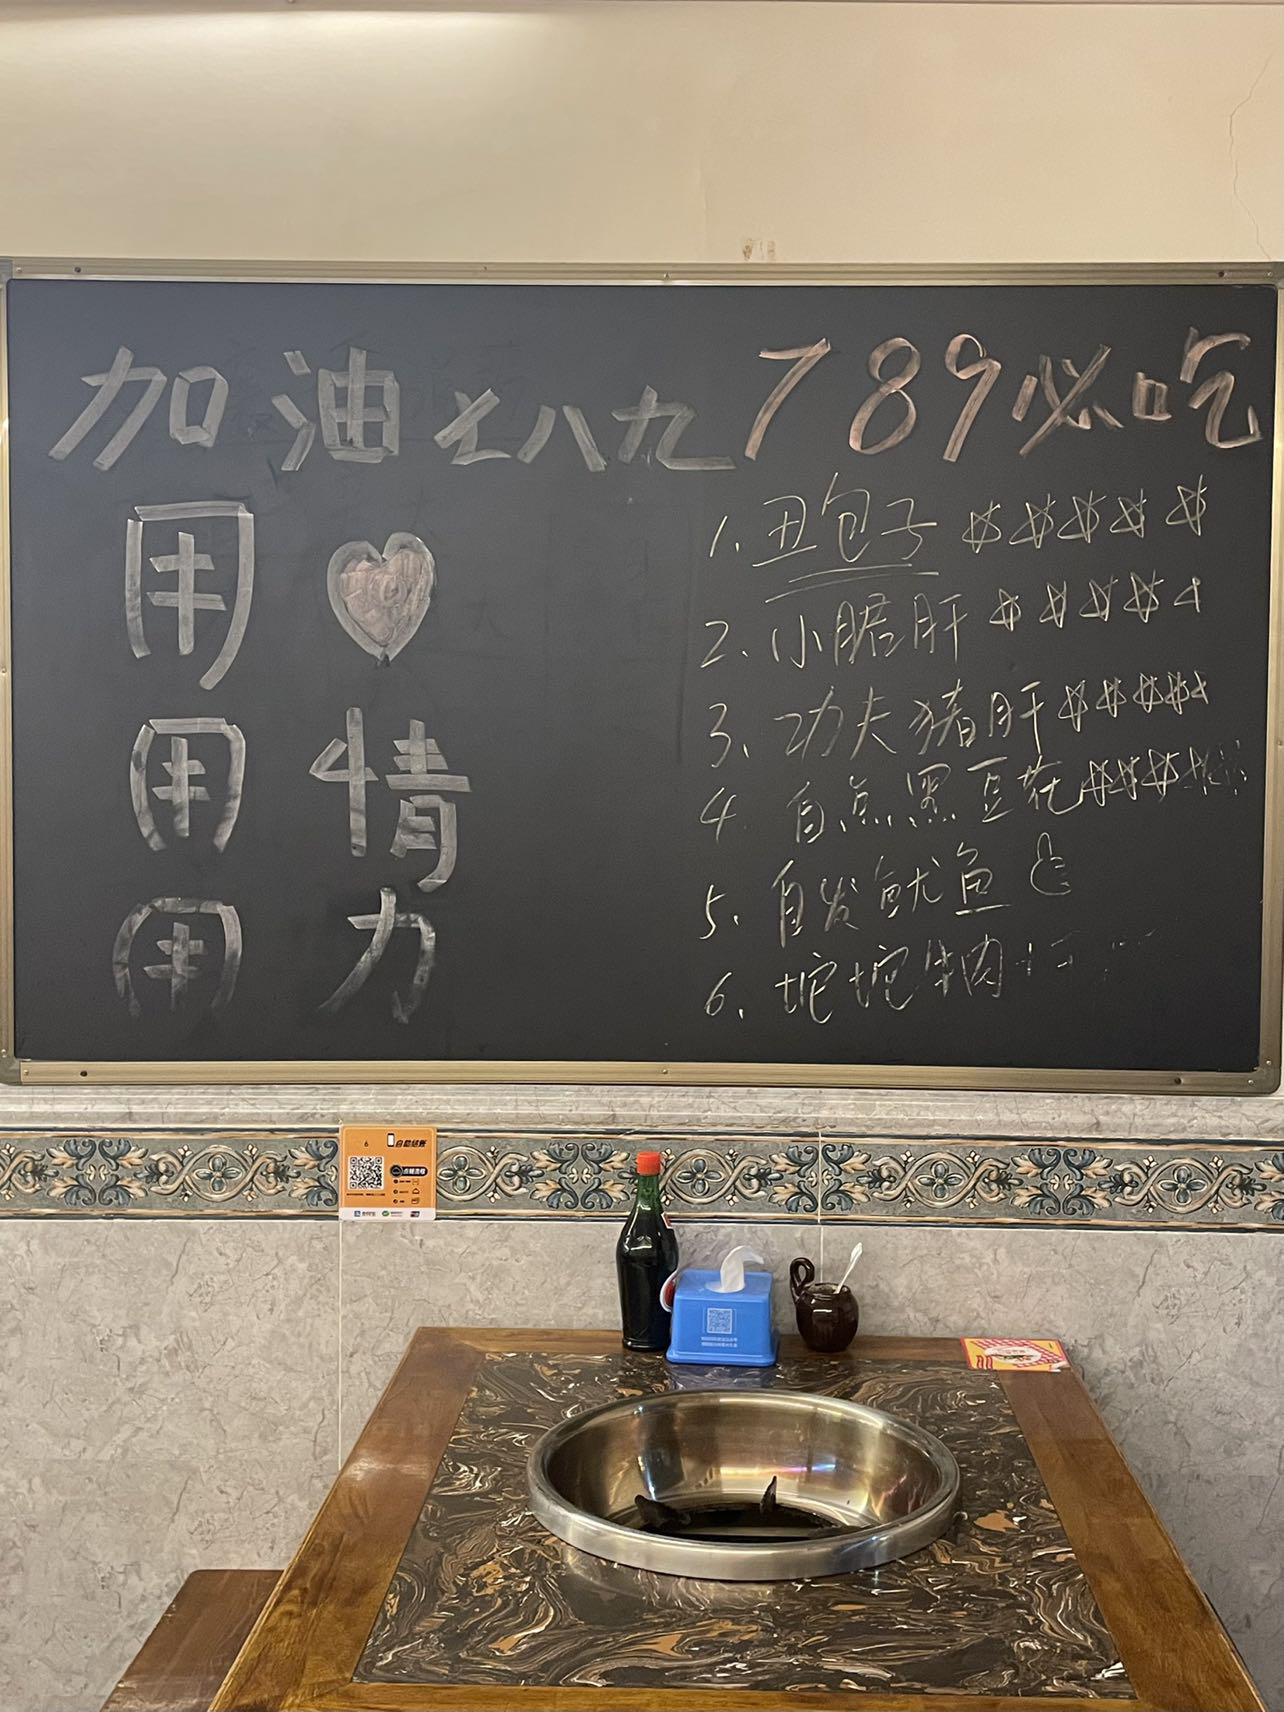 加油七八九
用
用情
用力
789必吃
1.丑包子
2.小腊肝
3.功夫猪肝
4 自点黑豆花
5.自发鱿鱼
6.坨坨牛肉
6 自助结账